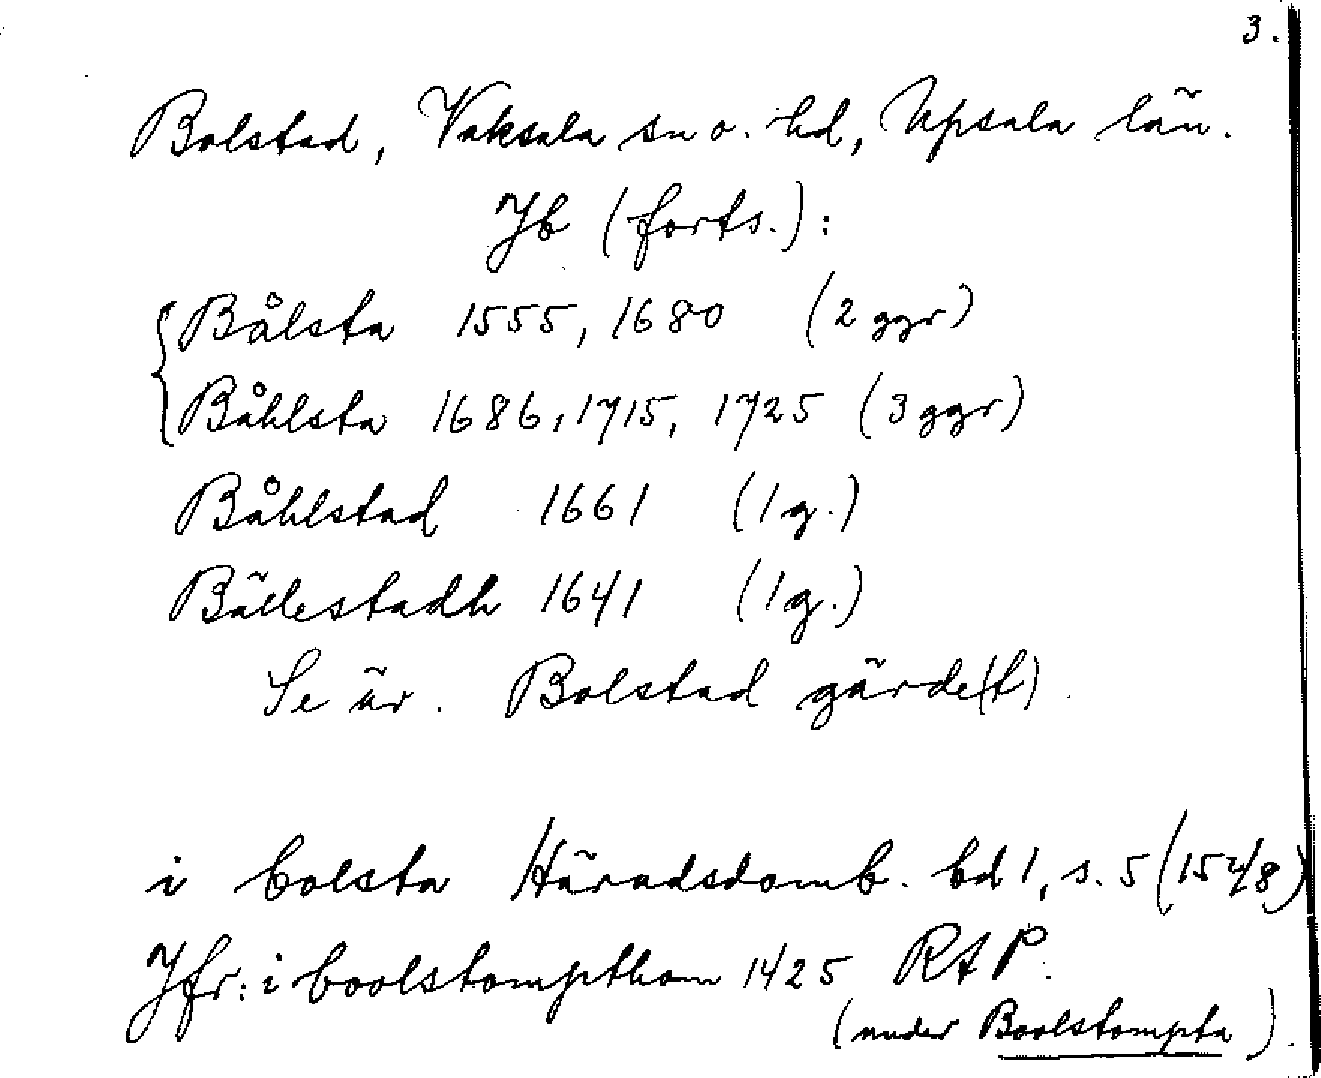 3.
Bolstad, Vaksala sn o. hd, Upsala län.
Jb (forts.):
Bålsta 1555, 1680 (2 ggr)
Båhlsta 1686, 1715, 1725 (3 ggr)
Båhlstad 1661 (1 g.)
Bällestadh 1641 (1 g.)
Se äv. Bolstad gärde(t).
i bolsta Häradsdomb. bd 1, s. 5 (1548)
Jfr: i boolstompthom 1425 RAP.
(under Boolstompta).